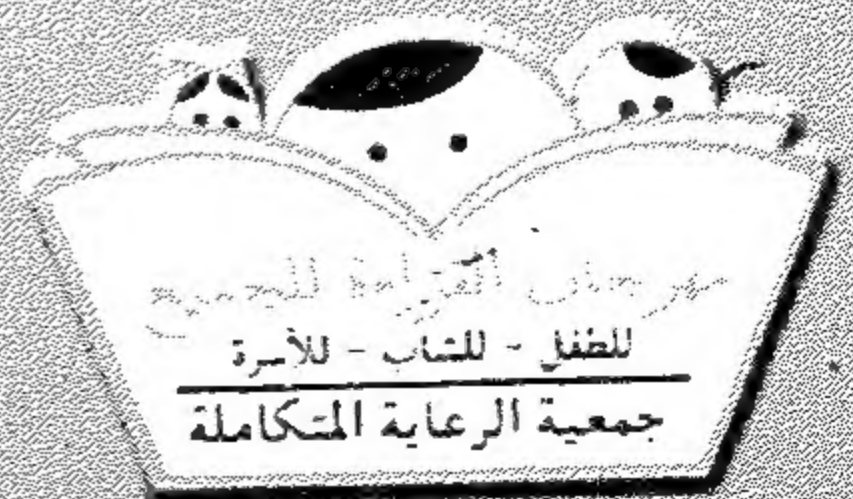 مهرجان القراءة للجميع
للطفل - للشاب - للأسرة
جمعية الرعاية المتكاملة